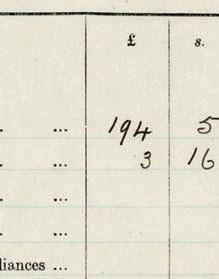 £ s.
. ... 194 5
. ... 3 16
. ...
. ...
liances ...